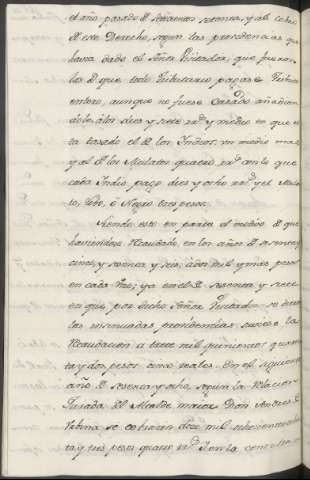 el año pasado de setecientos sesenta, y al cobro
de este Derecho, segun las providencias que
havia dado el Señor Visitador, que fueron
las de que todo Tributario pagase Tributo
entero, aunque no fuese Casado, añadien
dole à los dies y siete rr.s y medio en que es
ta tasado el de los Indios, un medio mas
y al de los Mulatos quatro rr.s con lo que
cada Indio, pagó dies y ocho rr.s y el Mula
to, Lobo, ò Negro tres pesos.
Siendo este en parte el motivo de que
haviendose Recaudado, en los años de sesenta y
cinco, y sesenta y seis, à dos mil y mas pesos
en cada uno; ya en el de sesenta y siete
en que por dicho Señor Visitador se dieron
las insinuadas providencias subiese la
Recaudacion a trece mil quinientos quaren
ta y dos pesos cinco reales. En el siguiente
año de sesenta y ocho, segun la Relacion
Jurada del Alcalde maior Don Andres de
Urbina se cobraron doce mil ochocientos
ta y tres pesos quatro rr.s